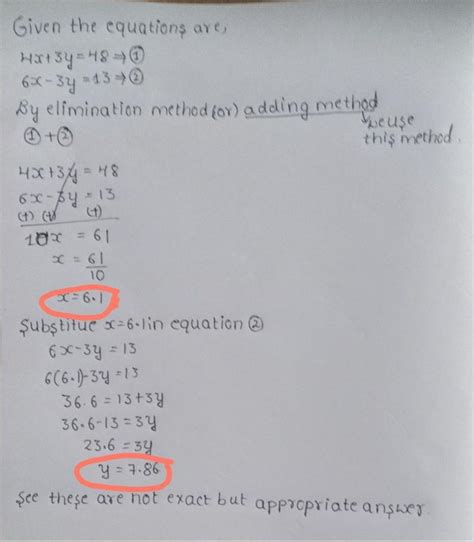 Given the equations are,
4x+3y=48⇒①
6x-3y=13⇒②
By elimination method(or) adding method
①+②
we use
this method.
4x+3y = 48
6x-3y = 13
(+) (+) (+)
10x = 61
x = 61/10
x=6.1
Substitue x=6.1in equation ②
6x-3y=13
6(6.1)-3y=13
36.6 = 13+3y
36.6-13=3y
23.6 =3y
y = 7.86
See these are not exact but appropriate answer.